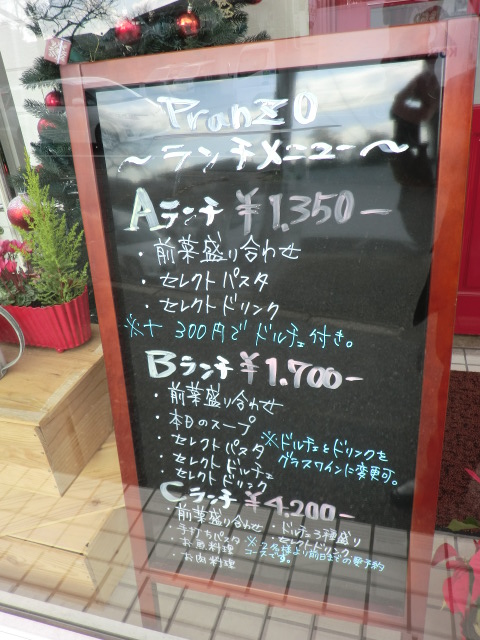 PranzO
～ランチメニュー～
Aランチ ¥1,350-
・前菜盛り合わせ
・セレクトパスタ
・セレクトドリンク
※＋300円でドルチェ付き。
Bランチ ¥1.700-
・前菜盛り合わせ
・本日のスープ
・セレクトパスタ
・セレクトドルチェ
・セレクトドリンク
※ドルチェとドリンクを
グラスワインに変更可。
Cランチ ¥4,200-
・前菜盛り合わせ
・手打ちパスタ
・お魚料理
・お肉料理
・ドルチェ3種盛り
・セレクトドリンク
※2名様より前日までの要予約
コースです。